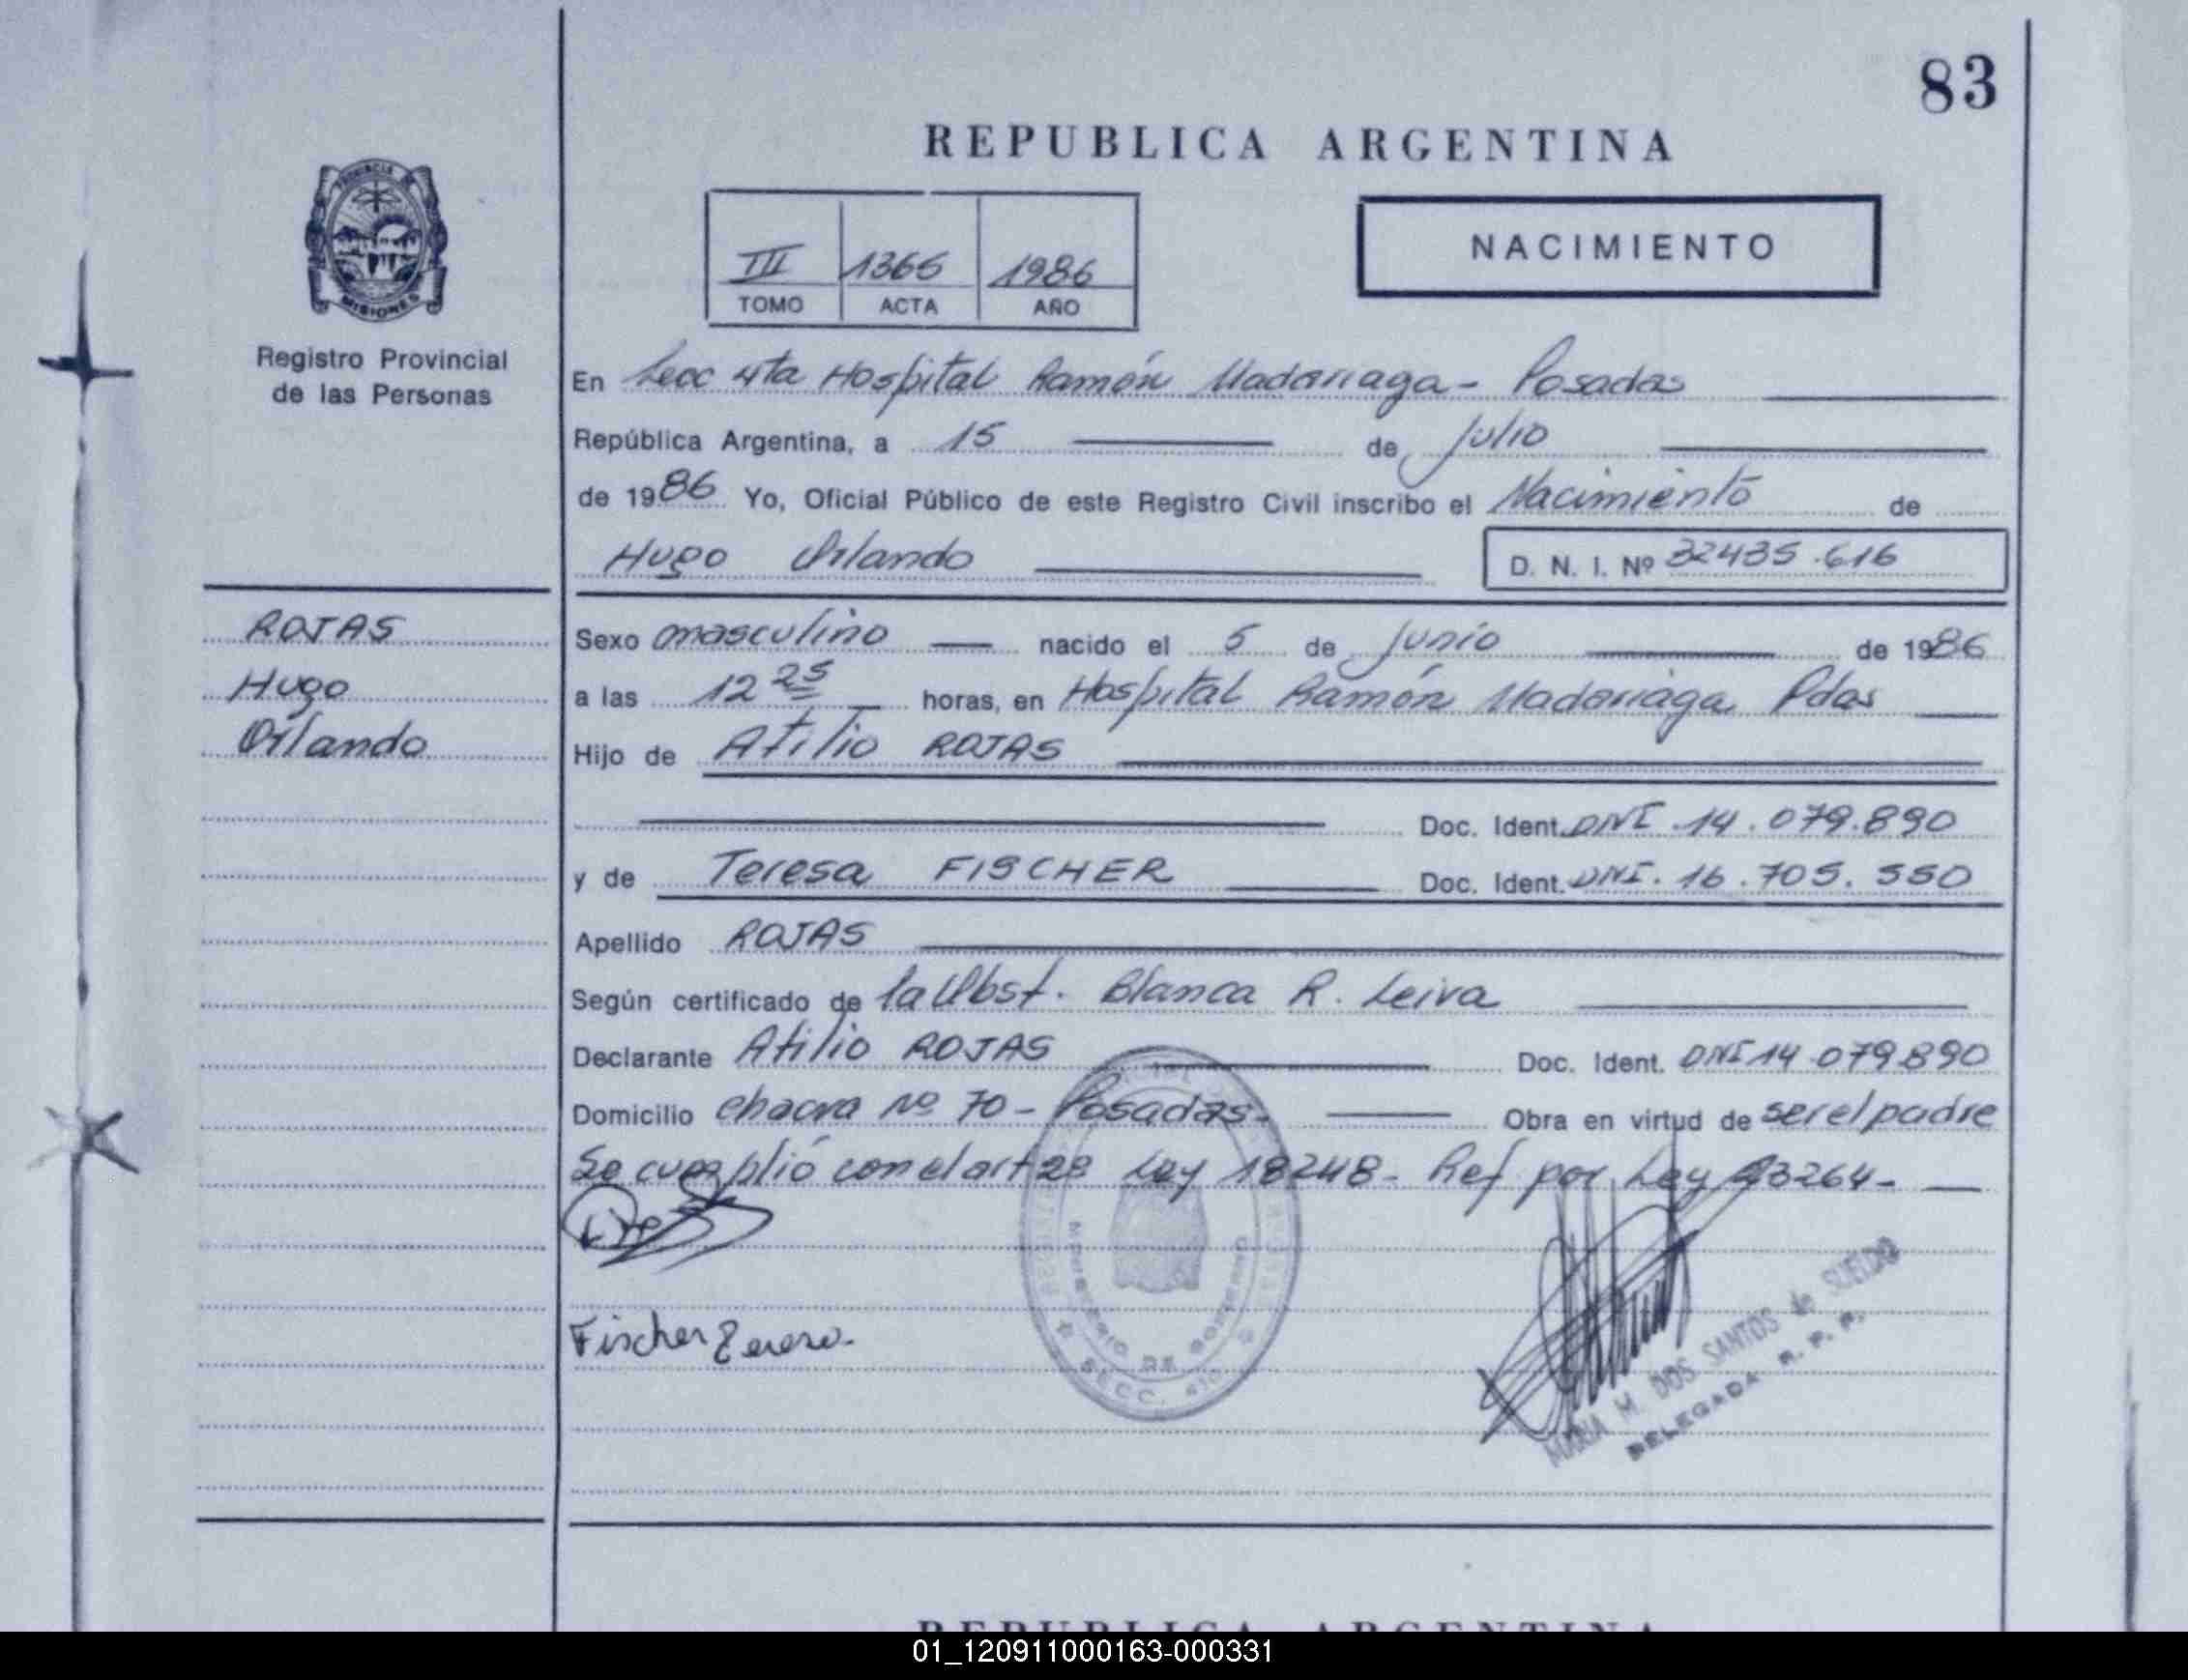 83
REPUBLICA ARGENTINA
III 1365 1986
TOMO ACTA AÑO
NACIMIENTO
PROVINCIA DE
MISIONES
Registro Provincial
de las Personas
En Secc 4ta Hospital Ramón Madariaga - Posadas
República Argentina, a 15 de Julio
de 1986 Yo, Oficial Público de este Registro Civil inscribo el Nacimiento de
Hugo Orlando D. N. I. Nº 32435.616
ROJAS
Hugo
Orlando
Sexo masculino nacido el 5 de junio de 1986
a las 12 25 horas, en Hospital Ramón Madariaga Pdas
Hijo de Atilio ROJAS
Doc. Ident. DNI 14.079.890
y de Teresa FISCHER Doc. Ident. DNI. 16.705.550
Apellido ROJAS
Según certificado de la Obst. Blanca R. Leiva
Declarante Atilio ROJAS Doc. Ident. DNI 14 079890
Domicilio chacra Nº 70 - Posadas - Obra en virtud de ser el padre
Se cumplió con el art 28 Ley 18248 - Ref por Ley 23264 -
MINISTERIO DE GOBIERNO
SECC. 4ta
Fischer Teresa.
MARIA M. DOS SANTOS de SUELDO
DELEGADA R. P. P.
REPUBLICA ARGENTINA
01_120911000163-000331